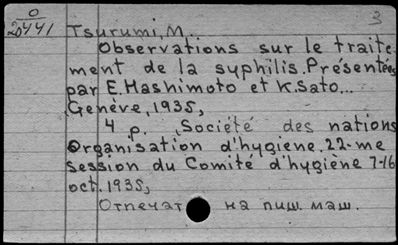 O
20441
3
Tsurumi, M.
Observations sur le traite-
ment de la syphilis. Présentées
par E. Hashimoto et K. Sato...
Genève, 1935,
4 p. Société des nations
Organisation d'hygiene. 22-me
session du Comité d'hygiène 7-16
oct. 1935,
Отпечат на пиш. маш.